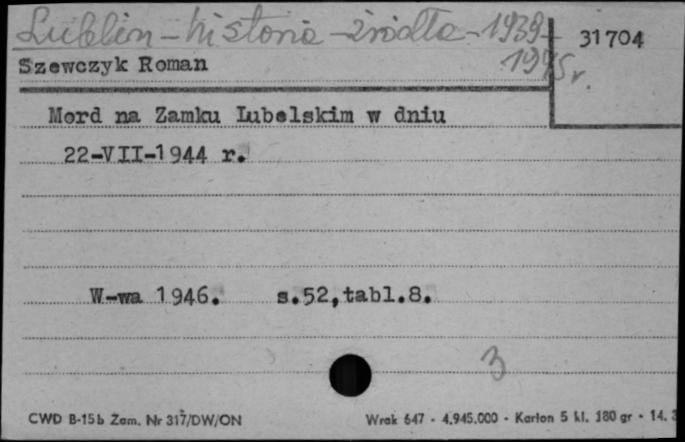 Lublin - historia - źródła - 1939-
1945 r.
31704
Szewczyk Roman
Mord na Zamku Lubelskim w dniu
22-VII-1944 r.
W-wa 1946. s.52,tabl.8.
3
CWD B-15b Zam. Nr 317/DW/ON
Wrak 647 - 4.945.000 - Karton 5 kl. 180 gr - 14.